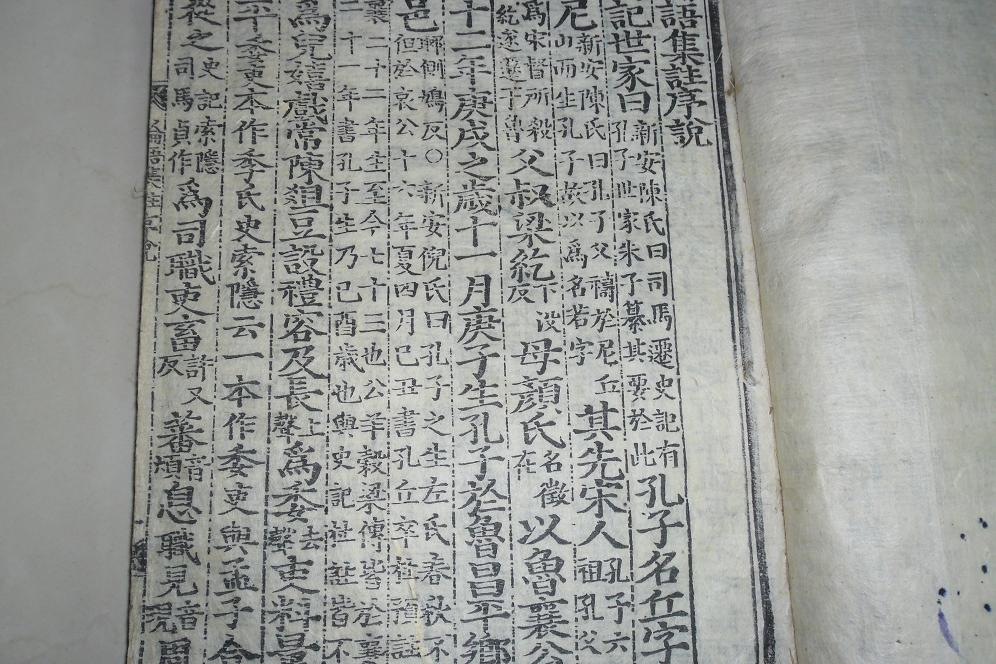 語集註序說
記世家曰新安陳氏曰司馬遷史記有孔子世家朱子纂其要於此孔子名丘字
尼新安陳氏曰孔子父禱於尼丘山而生孔子故以爲名若字其先宋人孔子六祖孔父
爲宋督所殺紇遂遷于魯父叔梁紇下沒反母顏氏名徵在以魯襄公
十二年庚戌之歲十一月庚子生孔子於魯昌平鄉
邑鄹側鳩反○新安倪氏曰孔子之生左氏春秋不但於哀公十六年夏四月己丑書孔丘卒杜預註
襄二十二年生至今七十三也公羊穀梁傳皆於襄二十一年書孔子生乃己酉歲也與史記杜註皆不
爲兒嬉戲常陳俎豆設禮容及長上聲爲委去聲吏料量
平委吏本作季氏史索隱云一本作委吏與孟子合
從之史記索隱司馬貞作爲司職吏畜許又反蕃音煩息職見音現周
論語集註序說